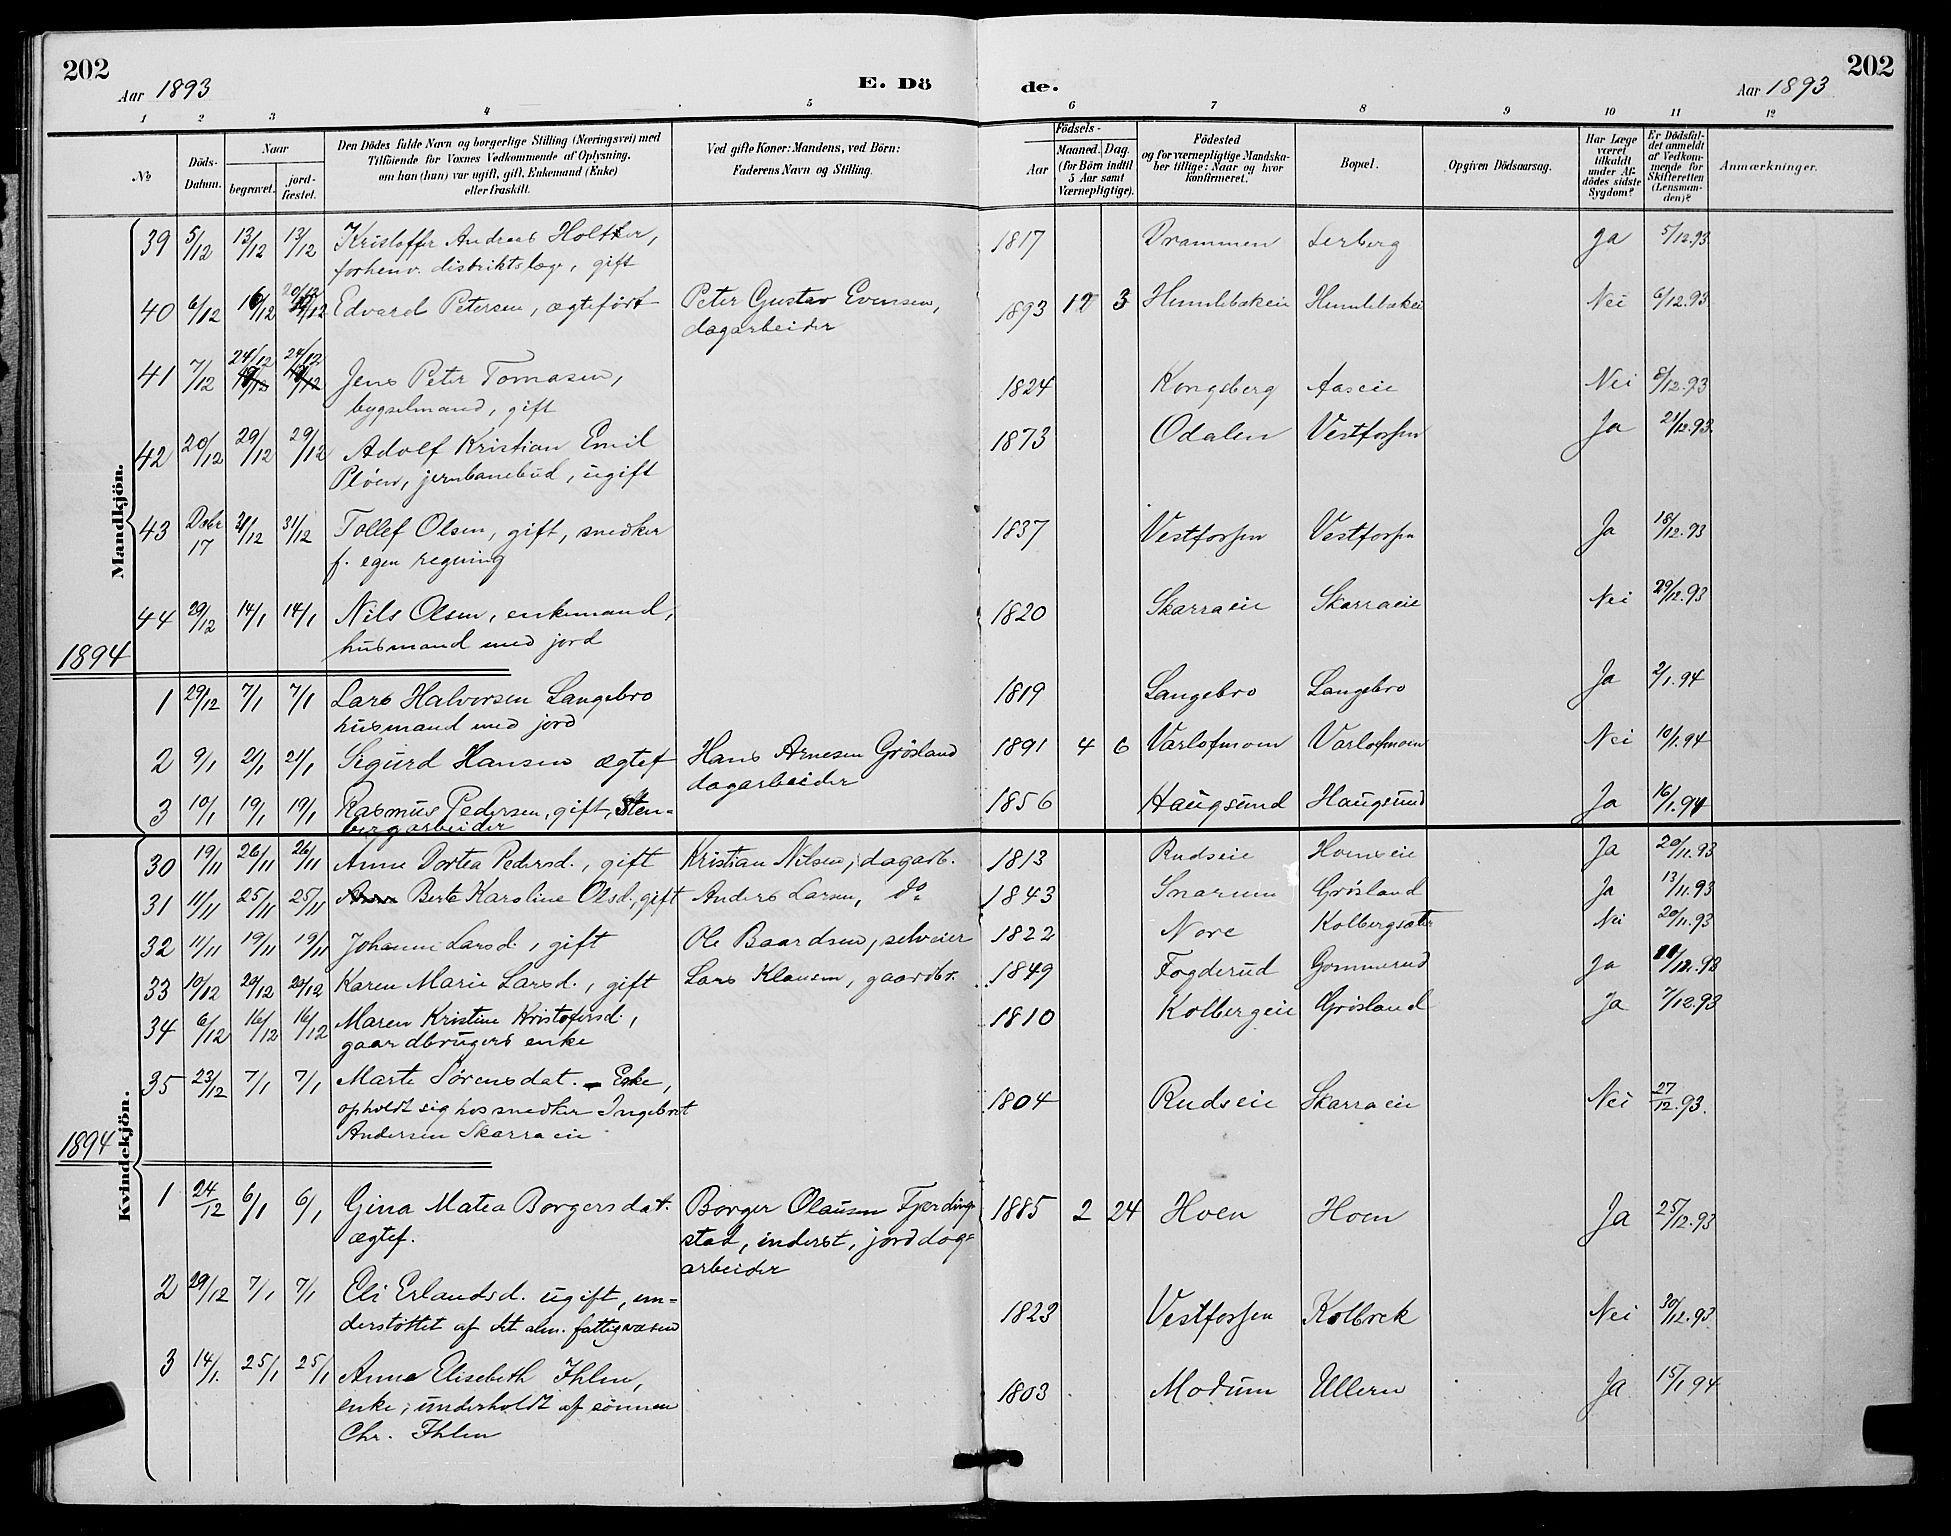 202
Aar 1893
E. Dö
de.
Aar 1893
202
1 2 3 4 5 6 7 8 9 10 11 12
No
Döds-Datum.
Naar
begravet.
jord-fæstet.
Den Dödes fulde Navn og borgerlige Stilling (Næringsvei) med
Tilföiende for Voxnes Vedkommende af Oplysning,
om han (hun) var ugift, gift, Enkemand (Enke)
eller fraskilt.
Ved gifte Koner: Mandens, ved Börn:
Faderens Navn og Stilling.
Födsels-
Aar
Maaned. Dag.
(for Börn indtil
5 Aar samt
Værnepligtige).
Födested
og for værnepligtige Mandska-
ber tillige: Naar og hvor
konfirmeret.
Bopæl.
Opgiven Dödsaarsag.
Har Læge
været
tilkaldt
under Af-
dödes sidste
Sygdom?
Er Dödsfal-
det anmeldt
af Vedkom-
mende for
Skifteretten
(Lensman-
den)?
Anmærkninger.
Mandkjön.
39 5/12 13/12 13/12 Kristoffer Andreas Holtker, 1817 Drammen Lerberg Ja 5/12.93
forhenv. distriktslæge, gift
40 6/12 16/12 Edvard Petersen, ægtefödt Peter Gustav Evensen, 1893 12 3 Humlebækeie Humlebækeie Nei 6/12.93
dagarbeider
24/12 24/12
41 7/12 Jens Peter Tomasen, 1824 Kongsberg Aaseie Nei 8/12.93
bygselmand, gift
42 20/12 29/12 29/12 Adolf Kristian Emil 1873 Odalen Vestfossen Ja 21/12.93
Plöen, jernbanebud, ugift
43 Dcbr 17 31/12 31/12 Tollef Olsen, gift, snedker 1837 Vestfossen Vestfossen Ja 18/12.93
f. egen regning
44 29/12 14/1 14/1 Nils Olsen, enkemand, 1820 Skarraeie Skarraeie Nei 29/12.93
husmand med jord
1894
1 29/12 7/1 7/1 Lars Halvorsen Langebro 1819 Langebro Langebro Ja 2/1.94
husmand med jord
2 9/1 21/1 21/1 Sigurd Hansen ægtef Hans Arnesen Grösland 1891 4 6 Varlofmoen Varlofmoen Nei 10/1.94
dagarbeider
3 10/1 19/1 19/1 Rasmus Pedersen, gift, Sten= 1856 Haugsund Haugsund Ja 16/1.94
bergarbeider
Kvindekjön.
30 19/11 26/11 26/11 Anne Dortea Pedersd., gift Kristian Nilsen, dagarb. 1813 Rudseie Hoenseie Ja 20/11.93
31 11/11 25/11 25/11 Berte Karoline Olsd., gift Anders Larsen, do 1843 Snarum Grösland Ja 13/11.93
32 11/11 19/11 19/11 Johanne Larsd., gift Ole Baardsen, selveier 1822 Nore Kolbergsæter Nei 20/11.93
33 10/12 20/12 20/12 Karen Marie Larsd., gift Lars Klausen, gaardbr. 1849 Fogderud Gommerud Ja 11/12.93
34 6/12 16/12 16/12 Maren Kristine Kristofersd., 1810 Kolbergeie Grösland Ja 7/12.93
gaardbrugers enke
35 23/12 7/1 7/1 Marte Sörensdat. - Enke, 1804 Rudseie Skarraeie Nei 27/12.93.
opholdt sig hos snedker Ingebret
Andersen Skarraeie
1894
1 24/12 6/1 6/1 Gina Matea Borgersdat. Borger Olausen Fjerding- 1885 2 24 Hoen Hoen Ja 25/12.93
ægtef. stad, inderst, jorddag=
arbeider
2 29/12 7/1 7/1 Eli Erlandsd. ugift, un= 1823 Vestfossen Kolbrek Nei 30/12.93
derstöttet af det alm. fattigvæsen
3 14/1. 25/1 25/1 Anne Elisebeth Ihlen, 1803 Modum Ullern Ja 15/1 94
enke, underholdt af sönnen
Chr. Ihlen